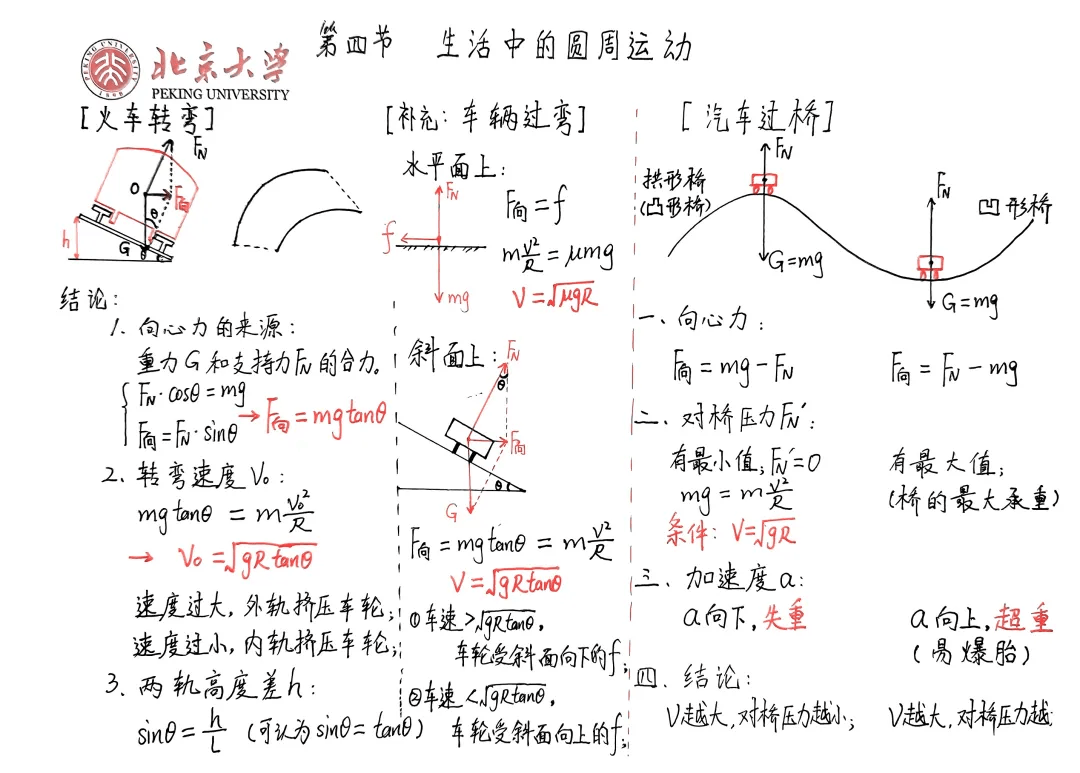 第四节 生活中的圆周运动
北京大学
PEKING UNIVERSITY
PEKING UNIVERSITY
1898
[火车转弯]
FN
O
F向
θ
h
G
θ
结论:
1. 向心力的来源:
重力G和支持力FN的合力。
FN·cosθ=mg
F向=FN·sinθ
→ F向=mgtanθ
2. 转弯速度V₀:
mgtanθ = m V₀²/R
→ V₀=√gRtanθ
速度过大,外轨挤压车轮;
速度过小,内轨挤压车轮;
3. 两轨高度差h:
sinθ = h/L (可认为sinθ=tanθ)
[补充: 车辆过弯]
水平面上:
FN
f
mg
F向=f
m V²/R = μmg
V=√μgR
斜面上:
FN
θ
F向
θ
G
F向=mgtanθ = m V²/R
V=√gRtanθ
①车速>√gRtanθ,
车轮受斜面向下的f;
②车速<√gRtanθ,
车轮受斜面向上的f;
[汽车过桥]
拱形桥
(凸形桥)
FN
G=mg
FN
凹形桥
G=mg
一、向心力:
F向=mg-FN F向=FN-mg
二、对桥压力FN′:
有最小值;FN′=0 有最大值;
mg = m V²/R (桥的最大承重)
条件: V=√gR
三、加速度a:
a向下,失重 a向上,超重
(易爆胎)
四、结论:
V越大,对桥压力越小; V越大,对桥压力越